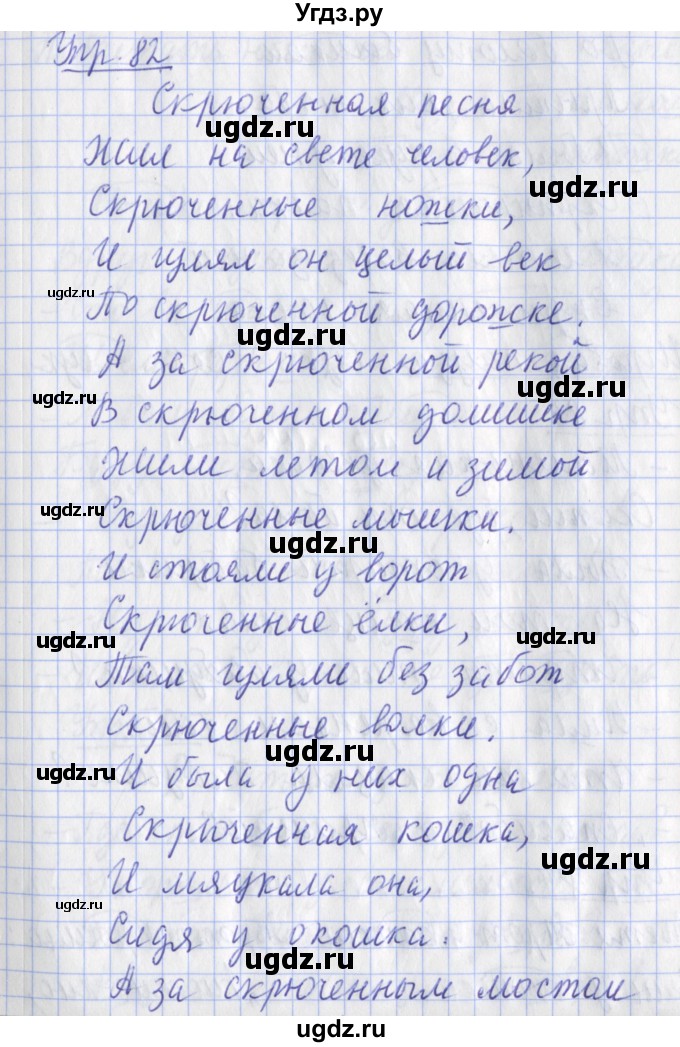 Угдз.ру
Упр. 82
Скрюченная песня
ugdz.ru
Жил на свете человек,
ugdz.ru
Скрюченные ножки,
И гулял он целый век
ugdz.ru
По скрюченной дорожке.
ugdz.ru
А за скрюченной рекой
ugdz.ru
ugdz.ru
В скрюченном домишке
Жили летом и зимой
ugdz.ru
Скрюченные мышки.
ugdz.ru
И стояли у ворот
Скрюченные ёлки,
ugdz.ru
ugdz.ru
Там гуляли без забот
Скрюченные волки.
ugdz.ru
ugdz.ru
И была у них одна
Скрюченная кошка,
ugdz.ru
И мяукала она,
ugdz.ru
Сидя у окошка.
ugdz.ru
А за скрюченным мостом
ugdz.ru